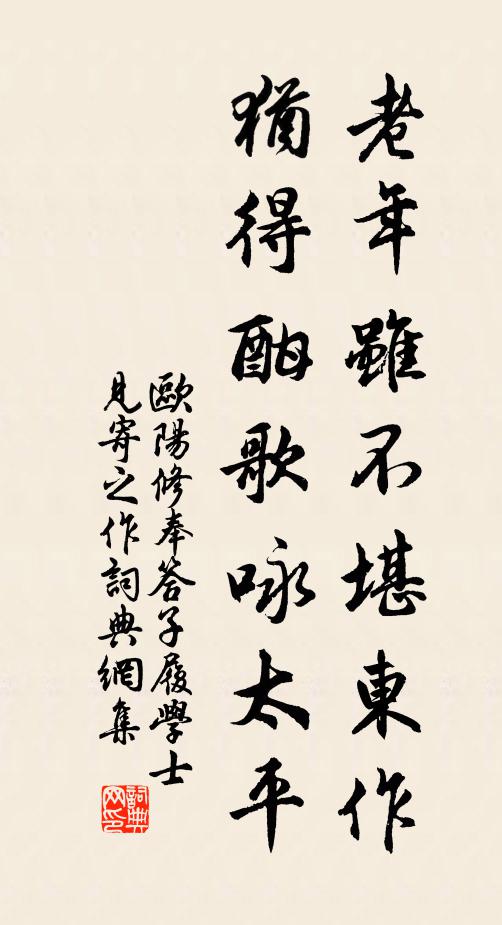 老年雖不堪東作
猶得酣歌咏太平
歐陽修奉答子履學士
見寄之作詞典網集
詞典
网印